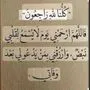 كُلُّنَا لِلّٰهِ رَاجِعُونَ
فَاللَّهُمَّ ارْحَمْنِي يَوْمَ لَا يُسْمَعُ لِقَلْبِي
نَبْضٌ، وَارْزُقْنِي بِمَنْ يَدْعُو لِي بَعْدَ
وَفَاتِي